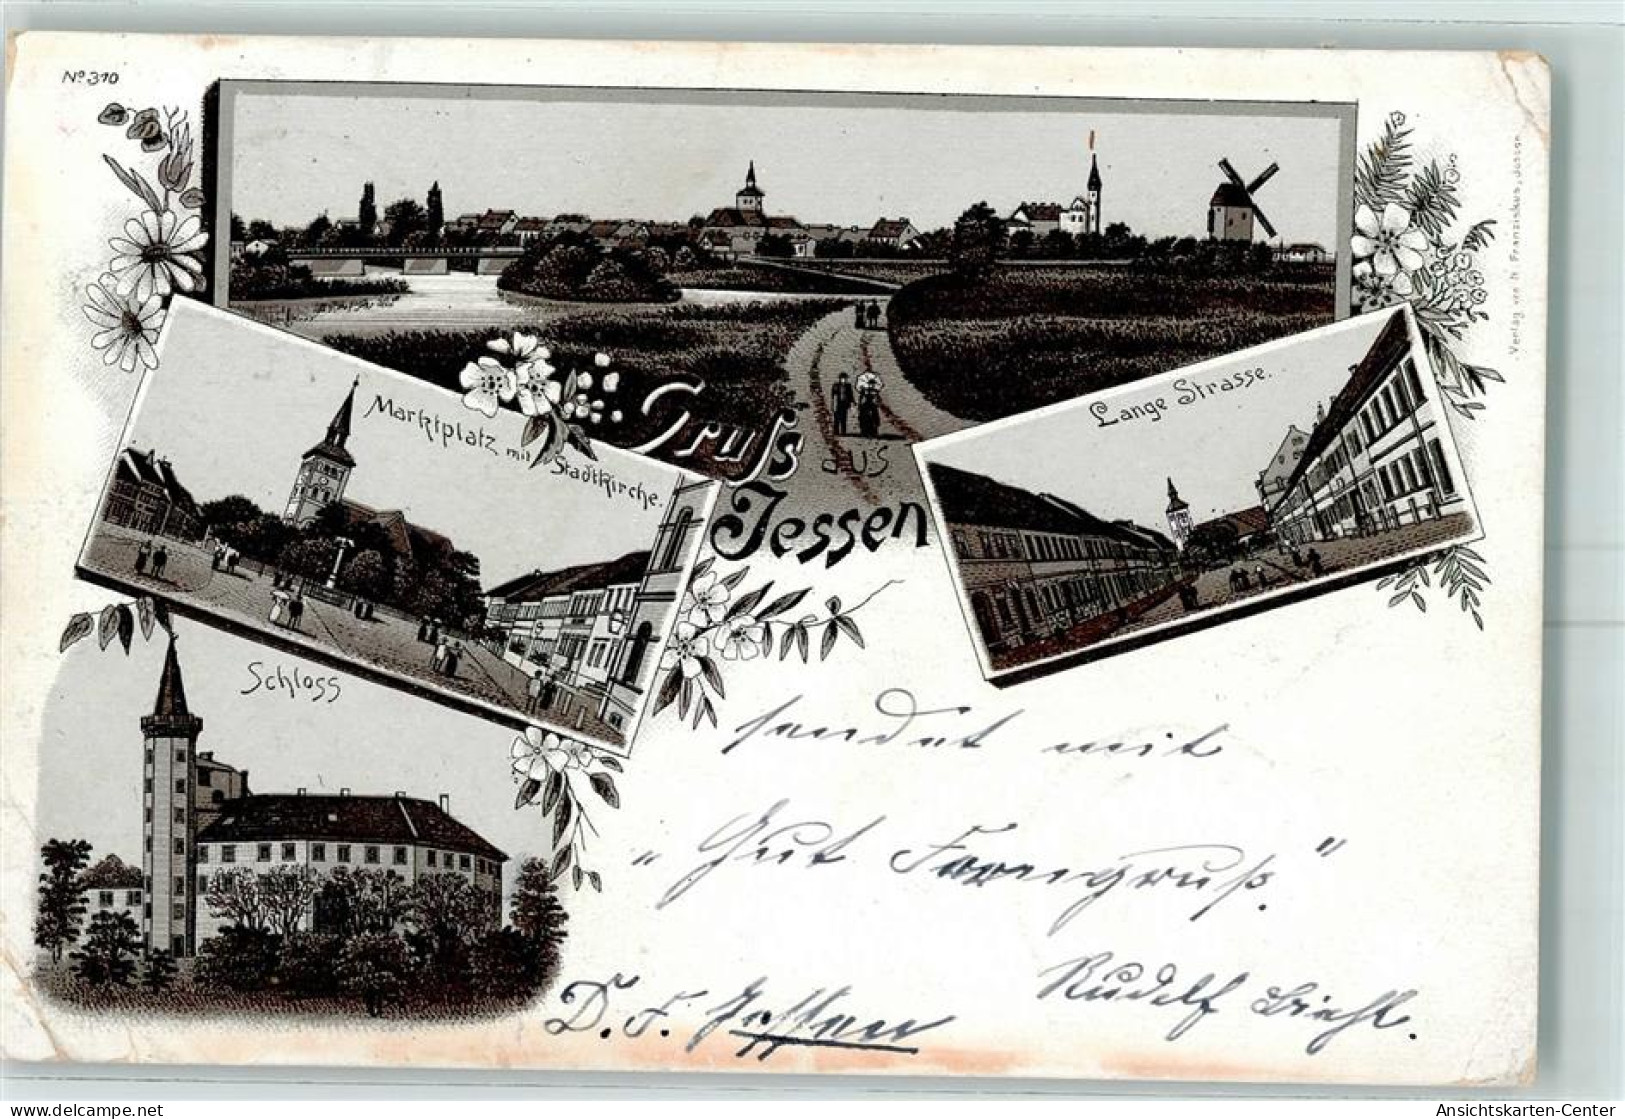 No 310
Verlag von H. Franziskus, Jessen
Gruss
aus
Jessen
Marktplatz mit Stadtkirche.
Lange Strasse.
Schloss
sendet mit
"Gut Forengruß."
Rudolf Biehl.
D. F. Jessen
delcampe.net
Ansichtskarten-Center